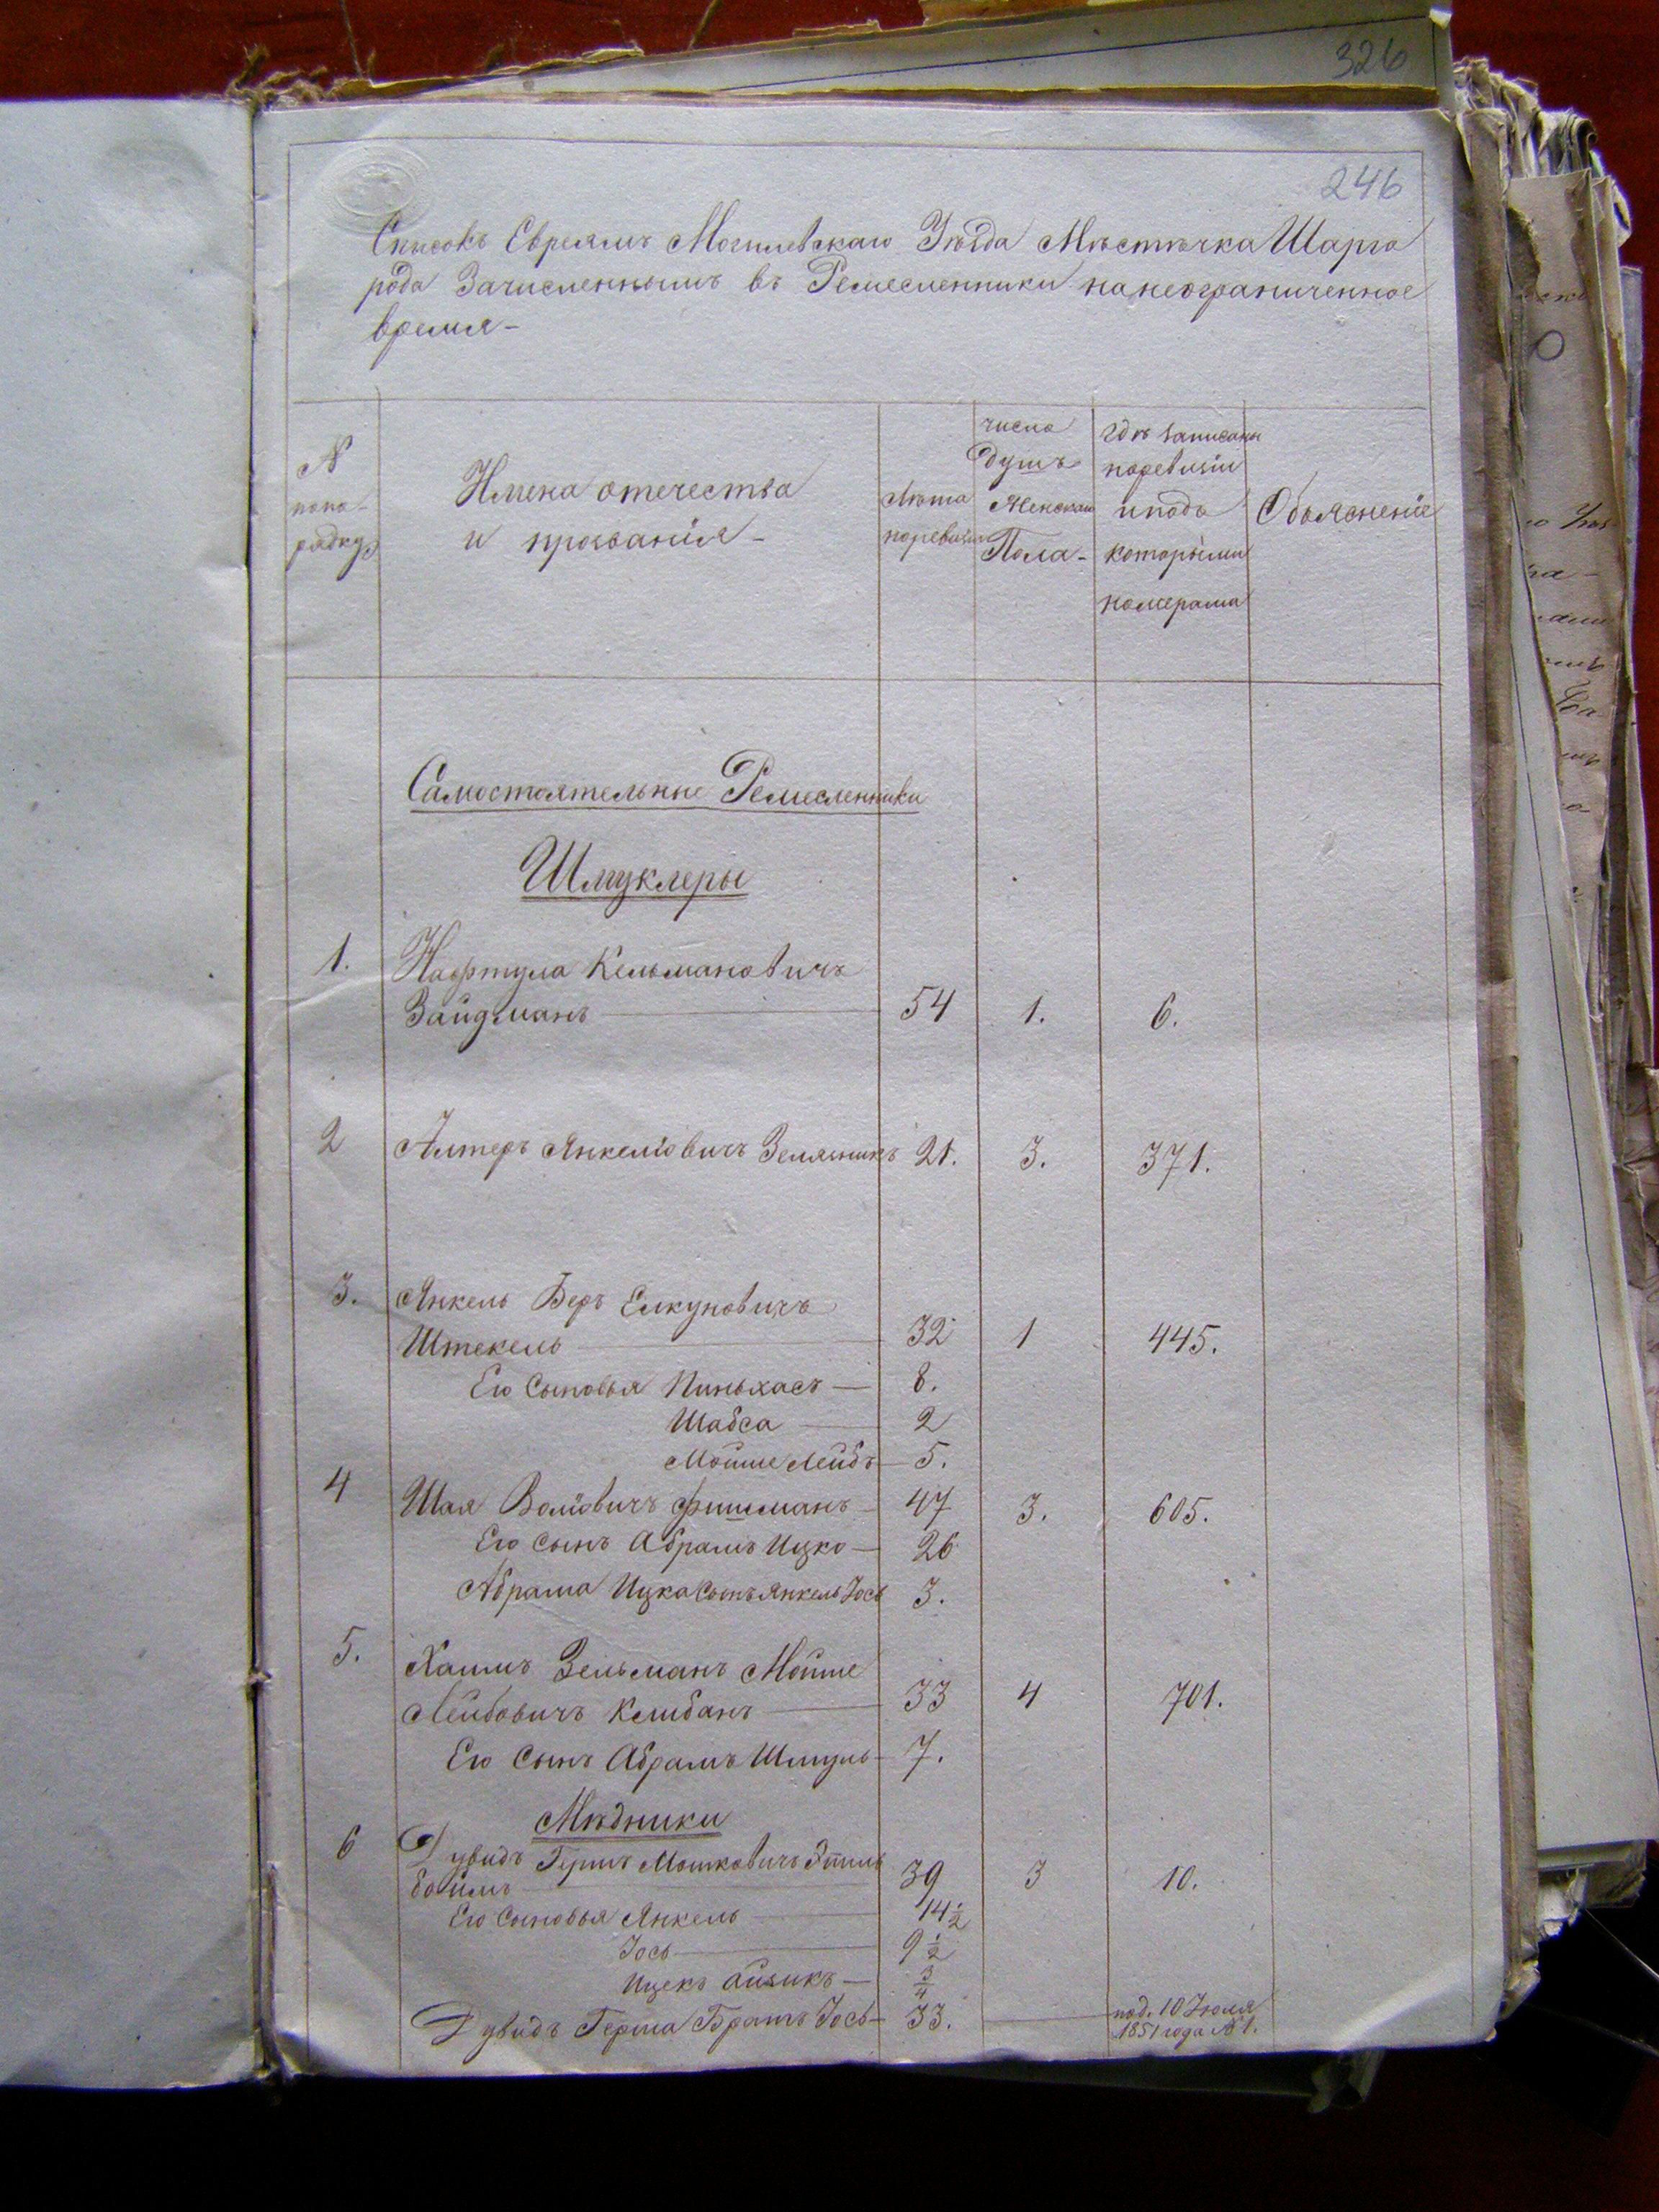 326
246
Списокъ Евреямъ Могилевскаго Уѣзда Мѣстѣчка Шарго
рода Зачисленнымъ въ Ремесленники на неограниченное
время-
N
попо-
рядку
Имена отечества
и прозванія-
Лѣта
поревизіи
число
душъ
Женскаго
Пола-
гдѣ записаны
поревизіи
иподъ
которыми
номерами
Объясненіе
Самостоятельные Ремесленники
Шмуклеры
1. Нафтула Кельмановичъ
Зайдманъ 54 1. 6.
2 Алтеръ Янкелiовичъ 21. 3. 371.
3. Янкель Беръ Елкуновичъ
Штекель 32 1 445.
Его Сыновья Пиньхасъ 8.
Шабса 2
Мойше Лейбъ 5.
4 Шая Волiовичъ Фишманъ 47 3. 605.
Его Сынъ Абрамъ Ицко 26
Абрама Ицка Сынъ Янкель Іось 3.
5. Хаимъ Зельманъ Мойше
Лейбовичъ Клибанъ 33 4 701.
Его Сынъ Абрамъ Шмуль 7.
Мѣдники
6 Дувидъ Гершъ Мошковичъ Эпель
боймъ 39 3 10.
Его Сыновья Янкель 14 1/2
Іось 9 1/2
Ицекъ Айзикъ 3/4
Дувидъ Герша Братъ Іось 33. под. 10 Іюля
1851 года N 1.